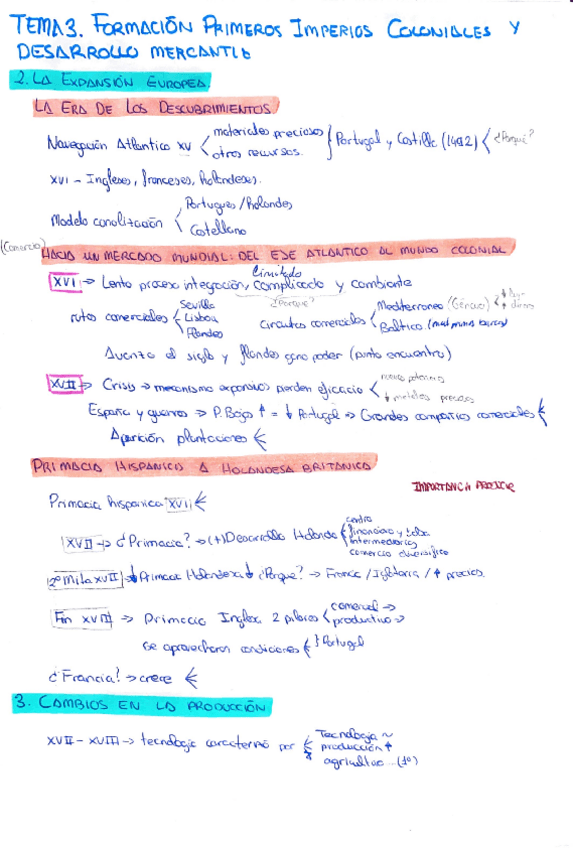 TEMA 3. FORMACIÓN PRIMEROS IMPERIOS COLONIALES Y
DESARROLLO MERCANTIL
2. LA EXPANSIÓN EUROPEA.
LA ERA DE LOS DESCUBRIMIENTOS
Navegación Atlántica XV < materiales preciosos
otros recursos. } Portugal y Castilla (1492) < ¿Porqué?
XVI - Ingleses, franceses, holandeses.
Modelo canalización < Portugues / Holandes
Castellano
(Comercio)
HACIA UN MERCADO MUNDIAL: DEL EJE ATLANTICO AL MUNDO COLONIAL
Limitado
XVI → Lento proceso integración, complicado y cambiante
¿Porque?
rutas comerciales < Sevilla
Lisboa
Flandes
Circuitos comerciales < Mediterraneo (Génova)
Baltico
Avanza el siglo y flandes gana poder (punto encuentro)
XVII → Crisis → mecanismo expansivos pierden eficacia < nuevas potencias
↓ metales preciosos
España y guerras → P. Bajos ↑ = ↓ Portugal → Grandes compañias comerciales <
Aparición plantaciones <
PRIMACIA HISPANICA A HOLANDESA BRITANICA
IMPORTANCIA
Primacia hispanica XVI <
XVII → ¿Primacia? → (+) Desarrollo Holanda < centro
financiero y
intermediarios
comercio diversifico
2º Mita XVII ↓ Primacia Holandesa ↓ ¿Porque? → Francia / Inglaterra / ↑ precios.
Fin XVII → Primacia Inglesa 2 pilares < comercial →
productivo →
se aprovecharon condiciones < } Portugal
¿Francia? → crece <
3. CAMBIOS EN LA PRODUCCIÓN
XVII - XVIII → tecnología caracterizó por < Tecnología ~
producción ↑
agricultura... (1º)